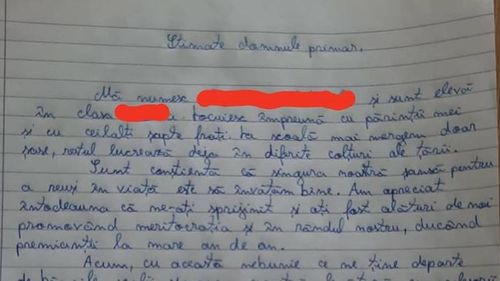 Stimate domnule primar,
Mă numesc și sunt elevă
în clasa locuiesc împreună cu părinții mei
și cu ceilalți șapte frați. La școală mai mergem doar
șase, restul lucrează deja în diferite colțuri ale țării.
Sunt conștientă că singura noastră șansă pentru
a reuși în viață este să învățăm bine. Am apreciat
întodeauna că ne-ați sprijinit și ați fost alături de noi
promovând meritocrația și în rândul nostru, ducând
premianții la mare an de an.
Acum, cu această nebunie ce ne ține departe
de